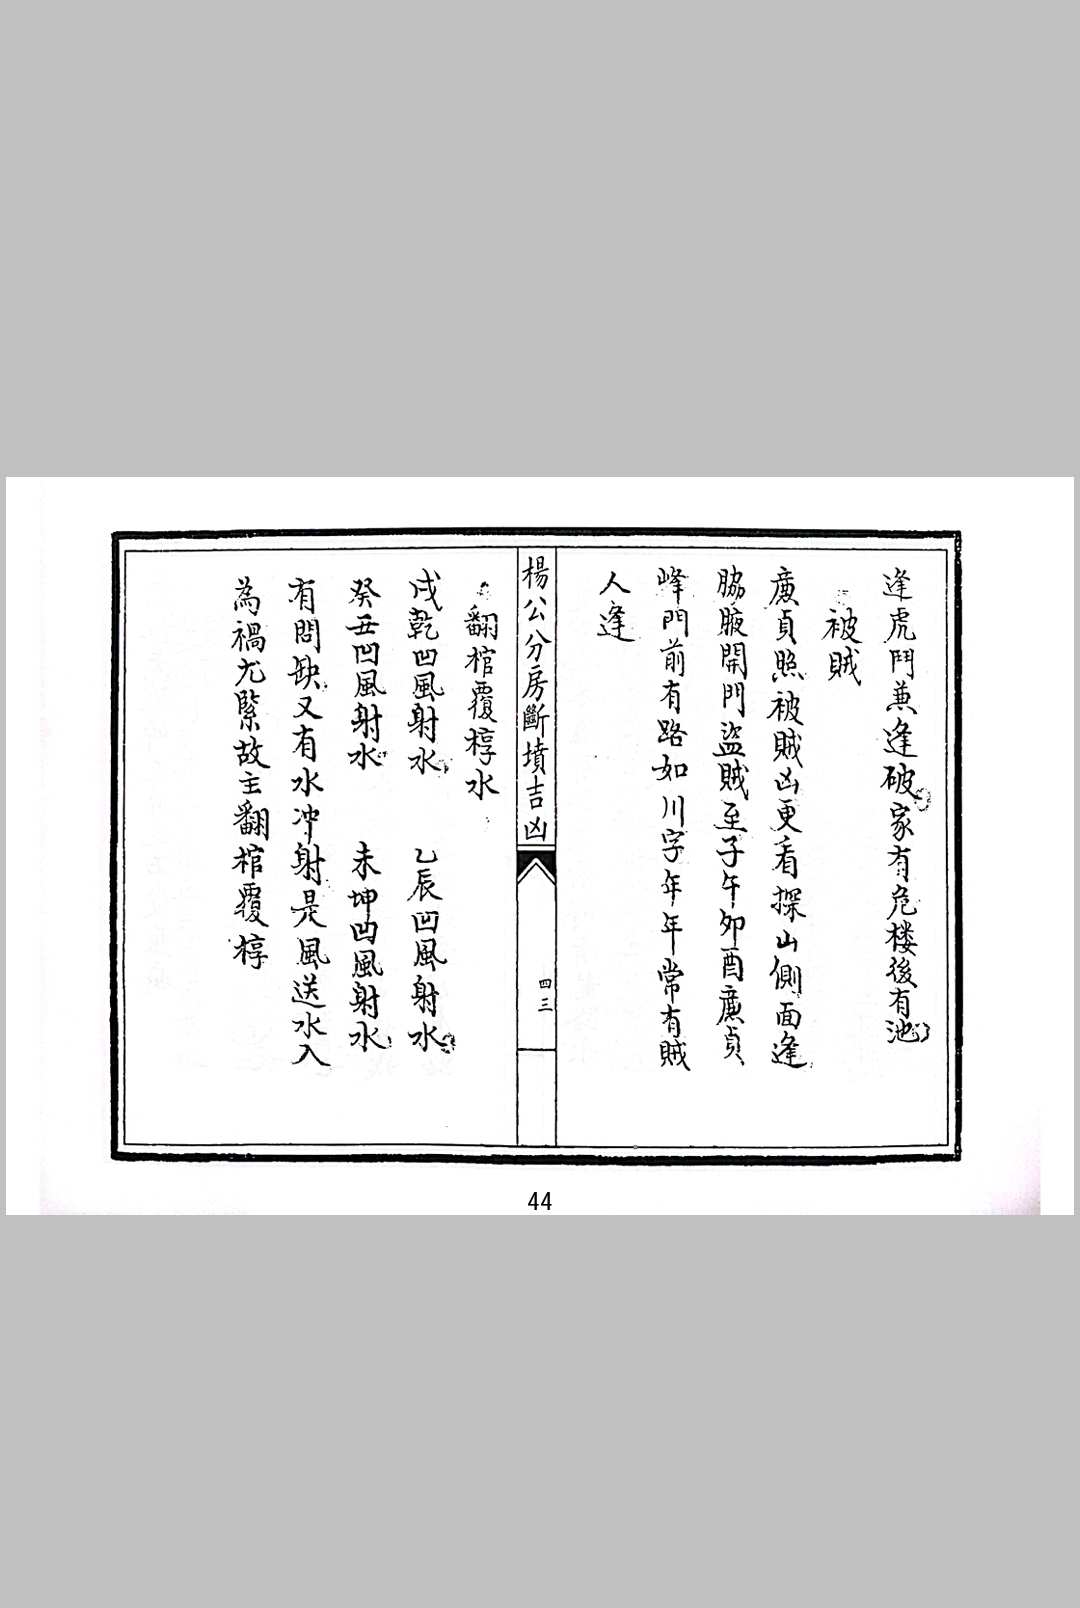 逢虎鬥兼逢破家有危楼後有池
被賊
廉貞照被賊凶更看探山側面逢
脇腋開門盜賊至子午卯酉廉貞
峰門前有路如川字年年常有賊
人逢
楊公分房斷墳吉凶
四三
翻棺覆椁水
戌乾凹風射水 乙辰凹風射水
癸丑凹風射水 未坤凹風射水
有問缺又有水冲射是風送水入
為禍尤緊故主翻棺覆椁
44